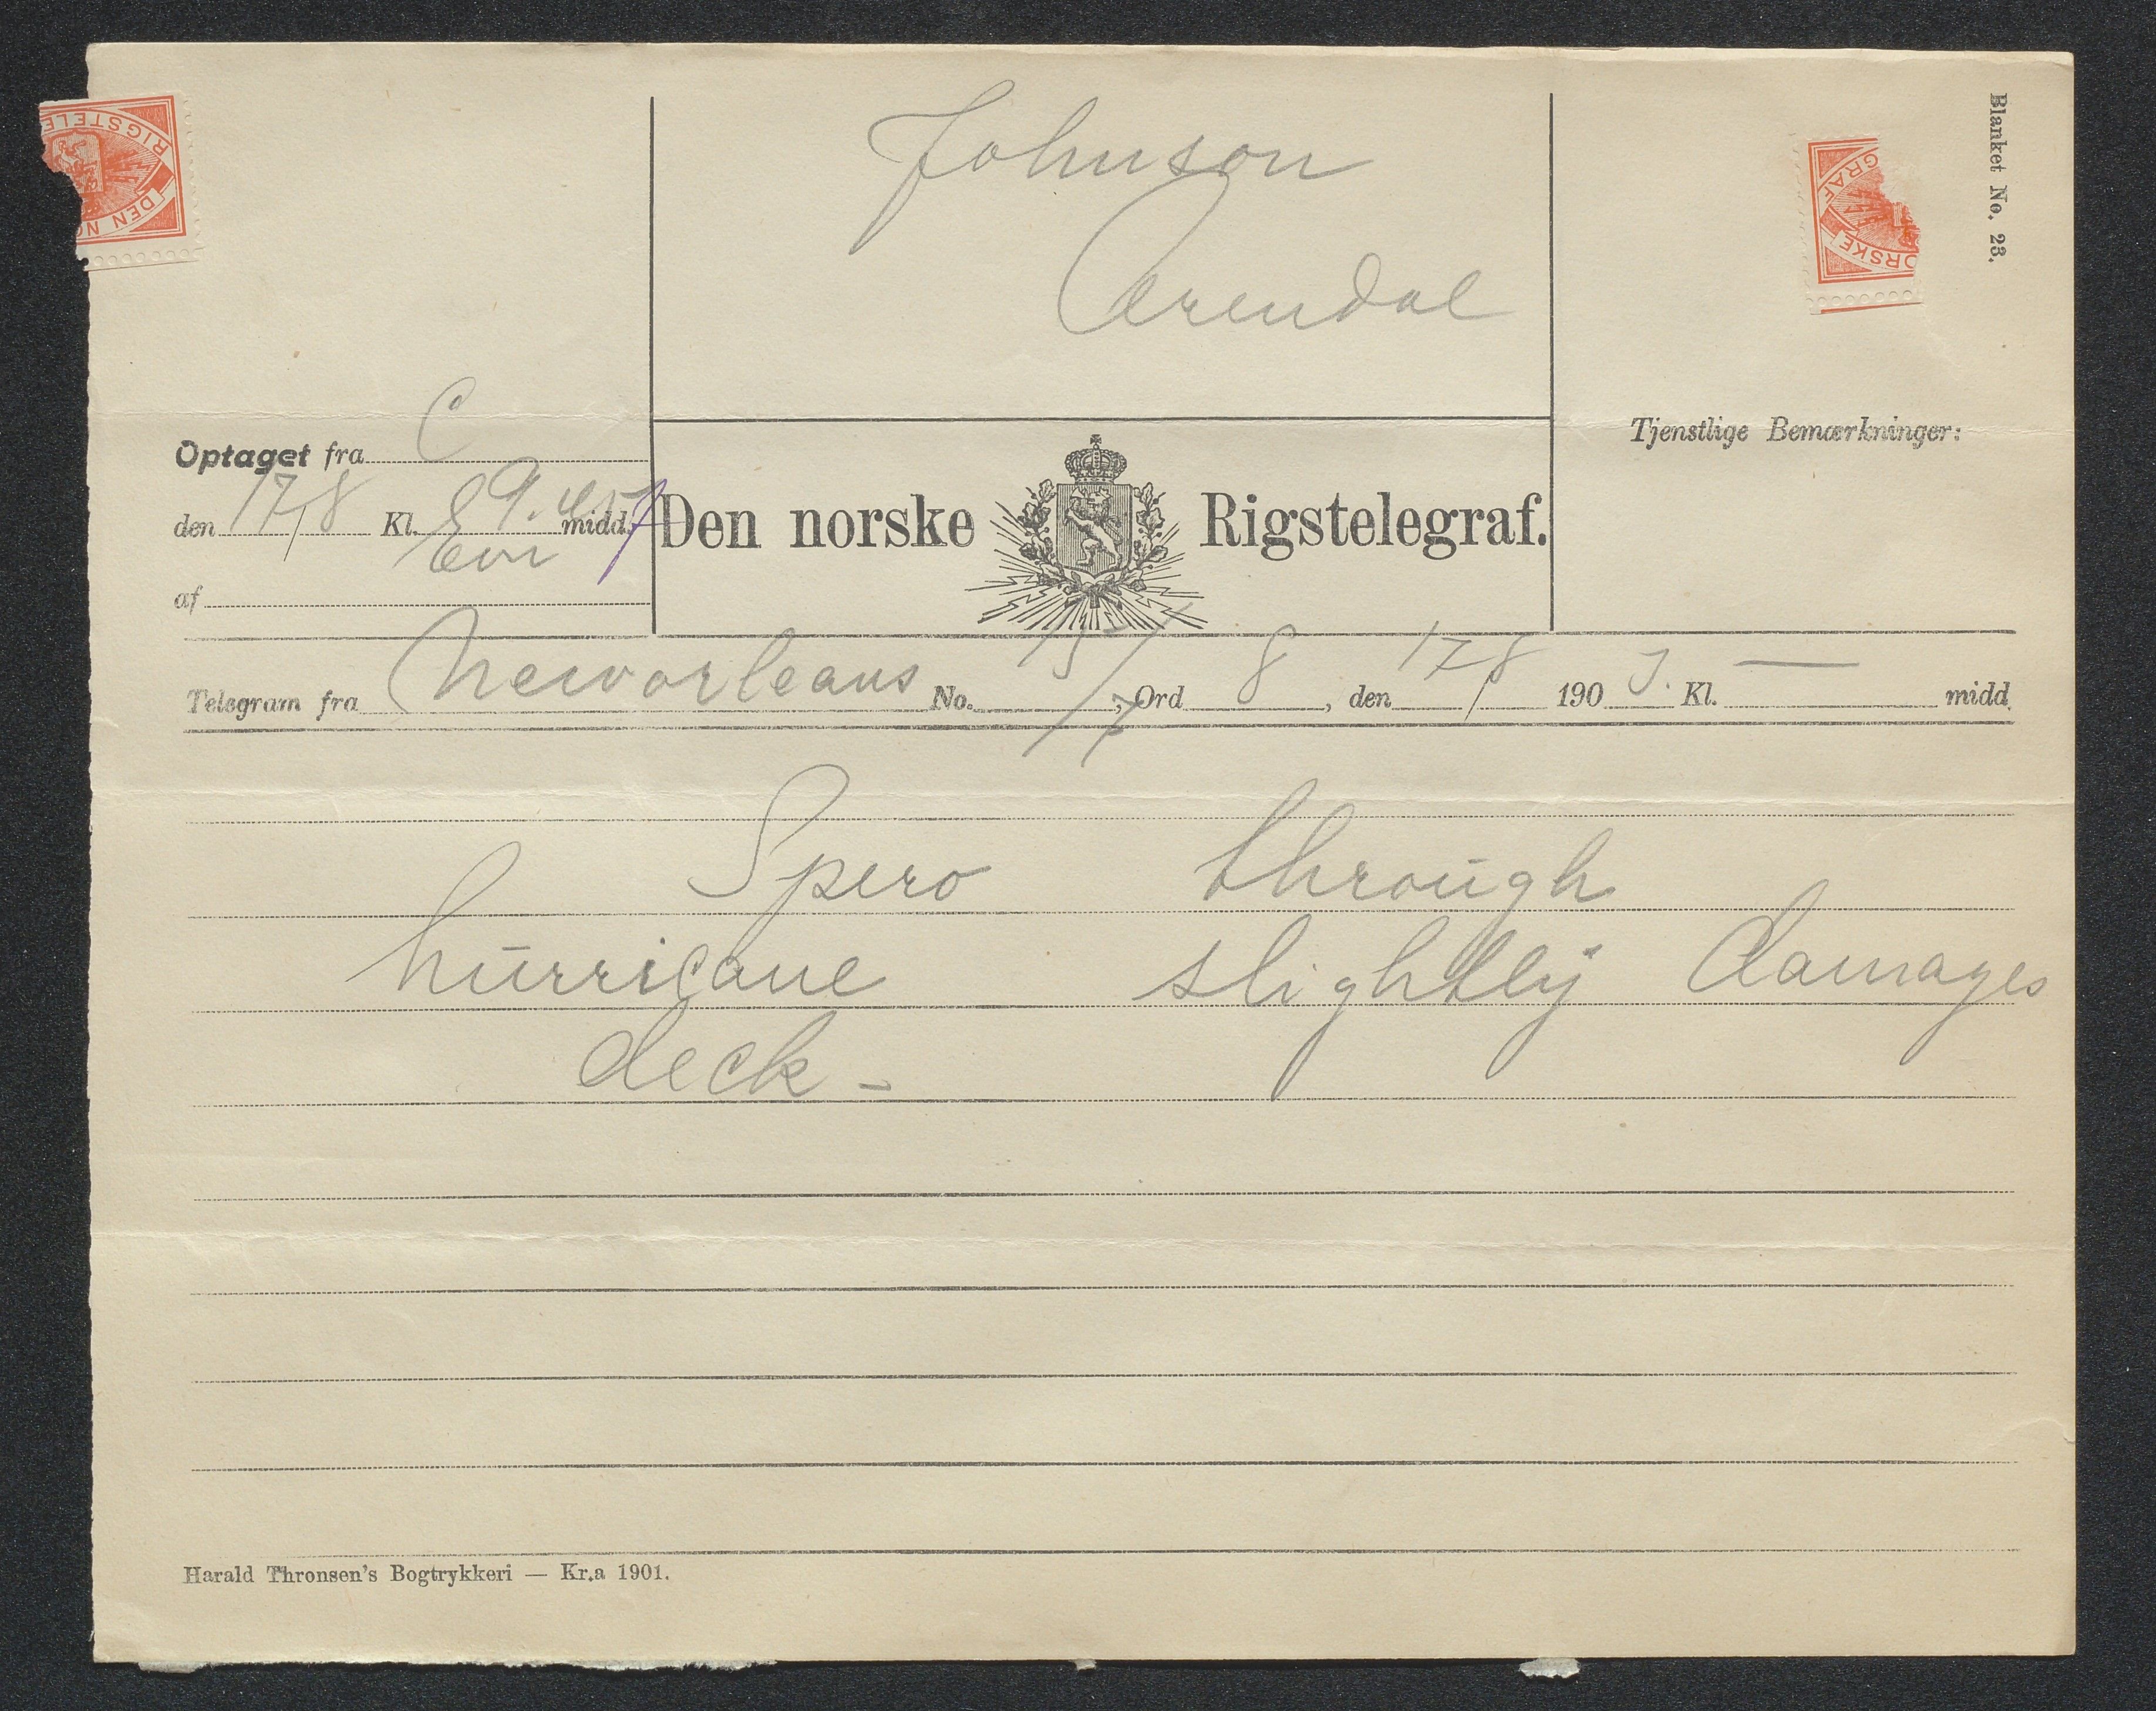 Blanket No. 23.
RIGSTELE
DEN NO
GRAF
ORSKE
Johnson
Arendal
Optaget fra C
den 17/8 Kl. E 9.45 midd.
af
Den norske Rigstelegraf.
Tjenstlige Bemærkninger:
Telegram fra Neworleans No. 15/7, Ord 8, den 17/8 1903. Kl. — midd.
Spero through
hurricane slightly damages
deck -
Harald Thronsen's Bogtrykkeri — Kr.a 1901.